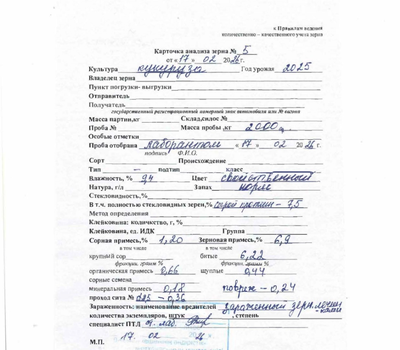 к Правилам ведения
количественно – качественного учета зерна
Карточка анализа зерна № 5
от « 17 » 02 2026г.
Культура кукуруза Год урожая 2025
Владелец зерна
Пункт погрузки- выгрузки
Отправитель
Получатель
государственный регистрационный номерной знак автомобиля или № вагона
Масса партии,кг Склад,силос №
Проба № Масса пробы ,кг 2000г.
Особые отметки
Проба отобрана лаборантом « 17 » 02 26 г.
подпись Ф.И.О.
Сорт Происхождение
Тип — подтип класс
Влажность, % 9,4 Цвет свойственный
Натура, г/л Запах норме
Стекловидность,%
В т.ч. полностью стекловидных зерен,% 7,5
Метод определения
Клейковина: количество, г, %
Клейковина, ед. ИДК Группа
Сорная примесь,% 1,20 Зерновая примесь,% 6,9
в том числе в том числе
крупный сор битые 6,22
фракции, грамм % фракции, грамм %
органическая примесь 0,66 щуплые 0,44
сорные семена
минеральная примесь 0,18 поврежд – 0,24
проход сита 0,36
Зараженность: наименование вредителей зараженный зерн.
количество экземпляров, штук степень
специалист ПТЛ лаб.
17. 02 26
М.П.